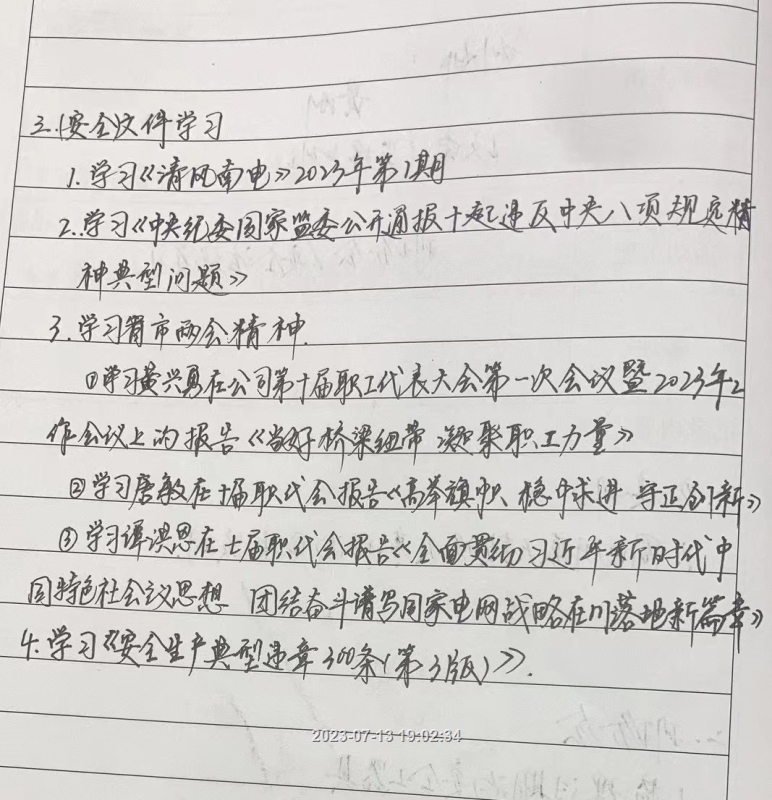 三.安全文件学习
1.学习《清风南电》2023年第1期
2.学习《中央纪委国家监委公开通报十起违反中央八项规定精
神典型问题》
3.学习省市两会精神.
①学习黄兴勇在公司第十届职工代表大会第一次会议暨2023年工
作会议上的报告《当好桥梁纽带 凝聚职工力量》
②学习唐敏在十届职代会报告《高举旗帜 稳中求进 守正创新》
③学习谭洪恩在七届职代会报告《全面贯彻习近平新时代中
国特色社会主义思想 团结奋斗谱写国家电网战略在川落地新篇章》
4.学习《安全生产典型违章300条(第3版)》.
2023-07-13 19:02:34